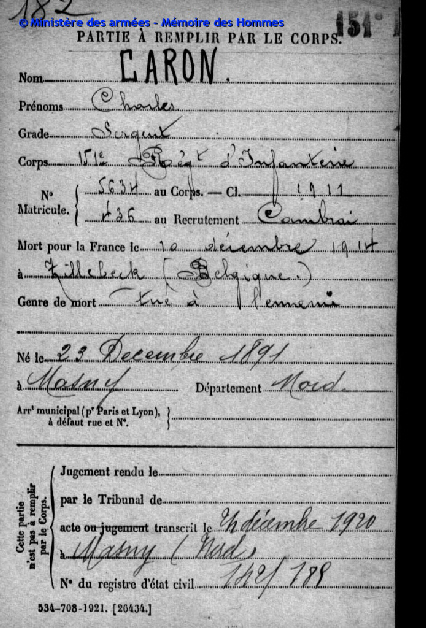 182
© Ministère des armées - Mémoire des Hommes
151e
PARTIE À REMPLIR PAR LE CORPS.
Nom CARON.
Prénoms Charles
Grade Sergent
Corps 151e Régt d'Infanterie
N° Matricule. { 5634 au Corps. — Cl. 1911
436 au Recrutement Cambrai
Mort pour la France le 10 décembre 1914
à Zillebeck (Belgique.)
Genre de mort Tué à l'ennemi
Né le 23 Decembre 1891
à Masny Département Nord
Arrt municipal (pr Paris et Lyon), à défaut rue et N°. }
Cette partie n'est pas à remplir par le Corps.
Jugement rendu le
par le Tribunal de
acte ou jugement transcrit le 24 décembre 1920
à Masny (Nord)
N° du registre d'état civil 142/188
534-708-1921. [26434.]